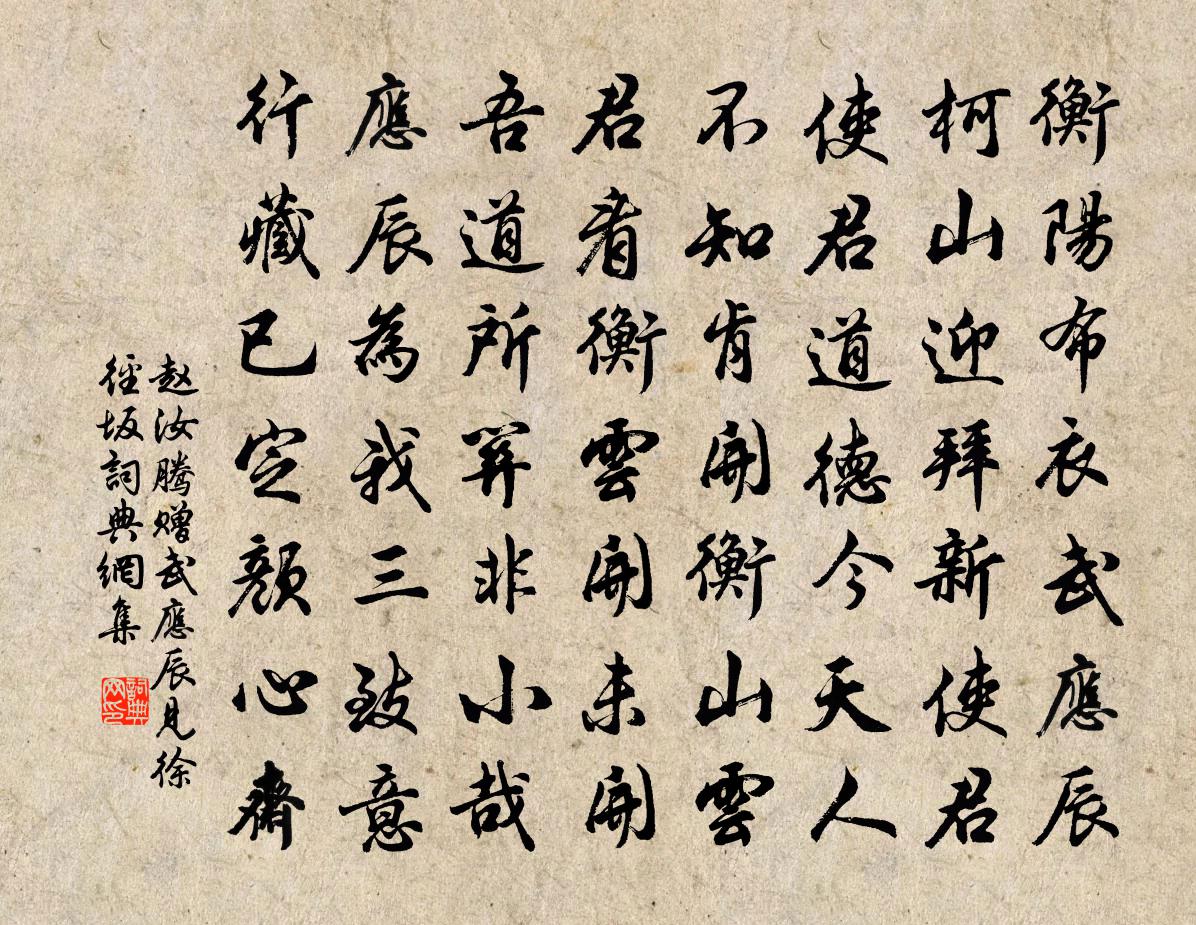 衡陽布衣武應辰
柯山迎拜新使君
使君道德今天人
不知肯開衡山雲
君看衡雲開未開
吾道所算非小哉
應辰為我三致意
行藏已定顏心齋
赵汝腾赠武應辰見徐
徑坂詞典網集
詞典网印